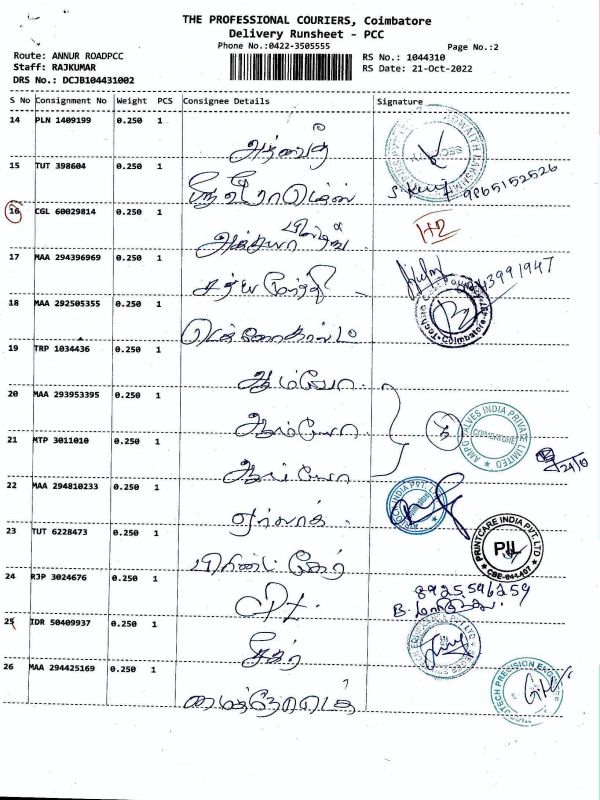 THE PROFESSIONAL COURIERS, Coimbatore
Delivery Runsheet - PCC
Phone No.:0422-3505555
Page No.:2
Route: ANNUR ROADPCC
Staff: RAJKUMAR
DRS No.: DCJB104431002
RS No.: 1044310
RS Date: 21-Oct-2022
S No Consignment No Weight PCS Consignee Details Signature
14 PLN 1409199 0.250 1
அத்வைத்
15 TUT 398604 0.250 1
9865152526
16 CGL 60029814 0.250 1
H2
17 MAA 294396969 0.250 1
சத்யமூர்த்தி
18 MAA 292505355 0.250 1
டெக்னோகாஸ்ட்
19 TRP 1034436 0.250 1
ஆம்போ
20 MAA 293953395 0.250 1
ஆம்போ
AMPO VALVES INDIA PRIVATE LIMITED
COIMBATORE
21 MTP 3011010 0.250 1
ஆம்போ
24/10
22 MAA 294810233 0.250 1
23 TUT 6228473 0.250 1
பிரிண்ட் கேர்
PRINTCARE INDIA PVT. LTD
PIL
CBE-641 407
24 RJP 3024676 0.250 1
8925596259
25 IDR 50409937 0.250 1
26 MAA 294425169 0.250 1
மைக்ரோடெக்